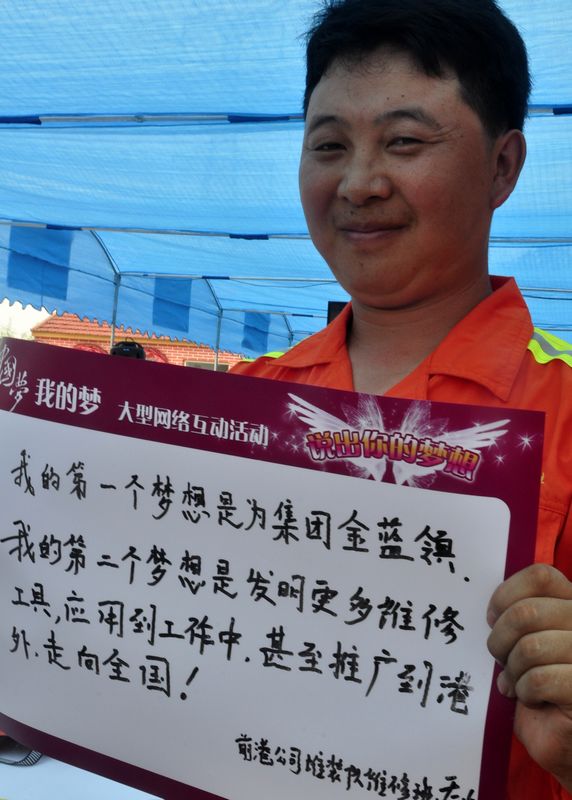 国梦 我的梦 大型网络互动活动
说出你的梦想
我的第一个梦想是为集团金蓝领.
我的第二个梦想是发明更多维修
工具,应用到工作中.甚至推广到港
外.走向全国!
前港公司堆装队维修班